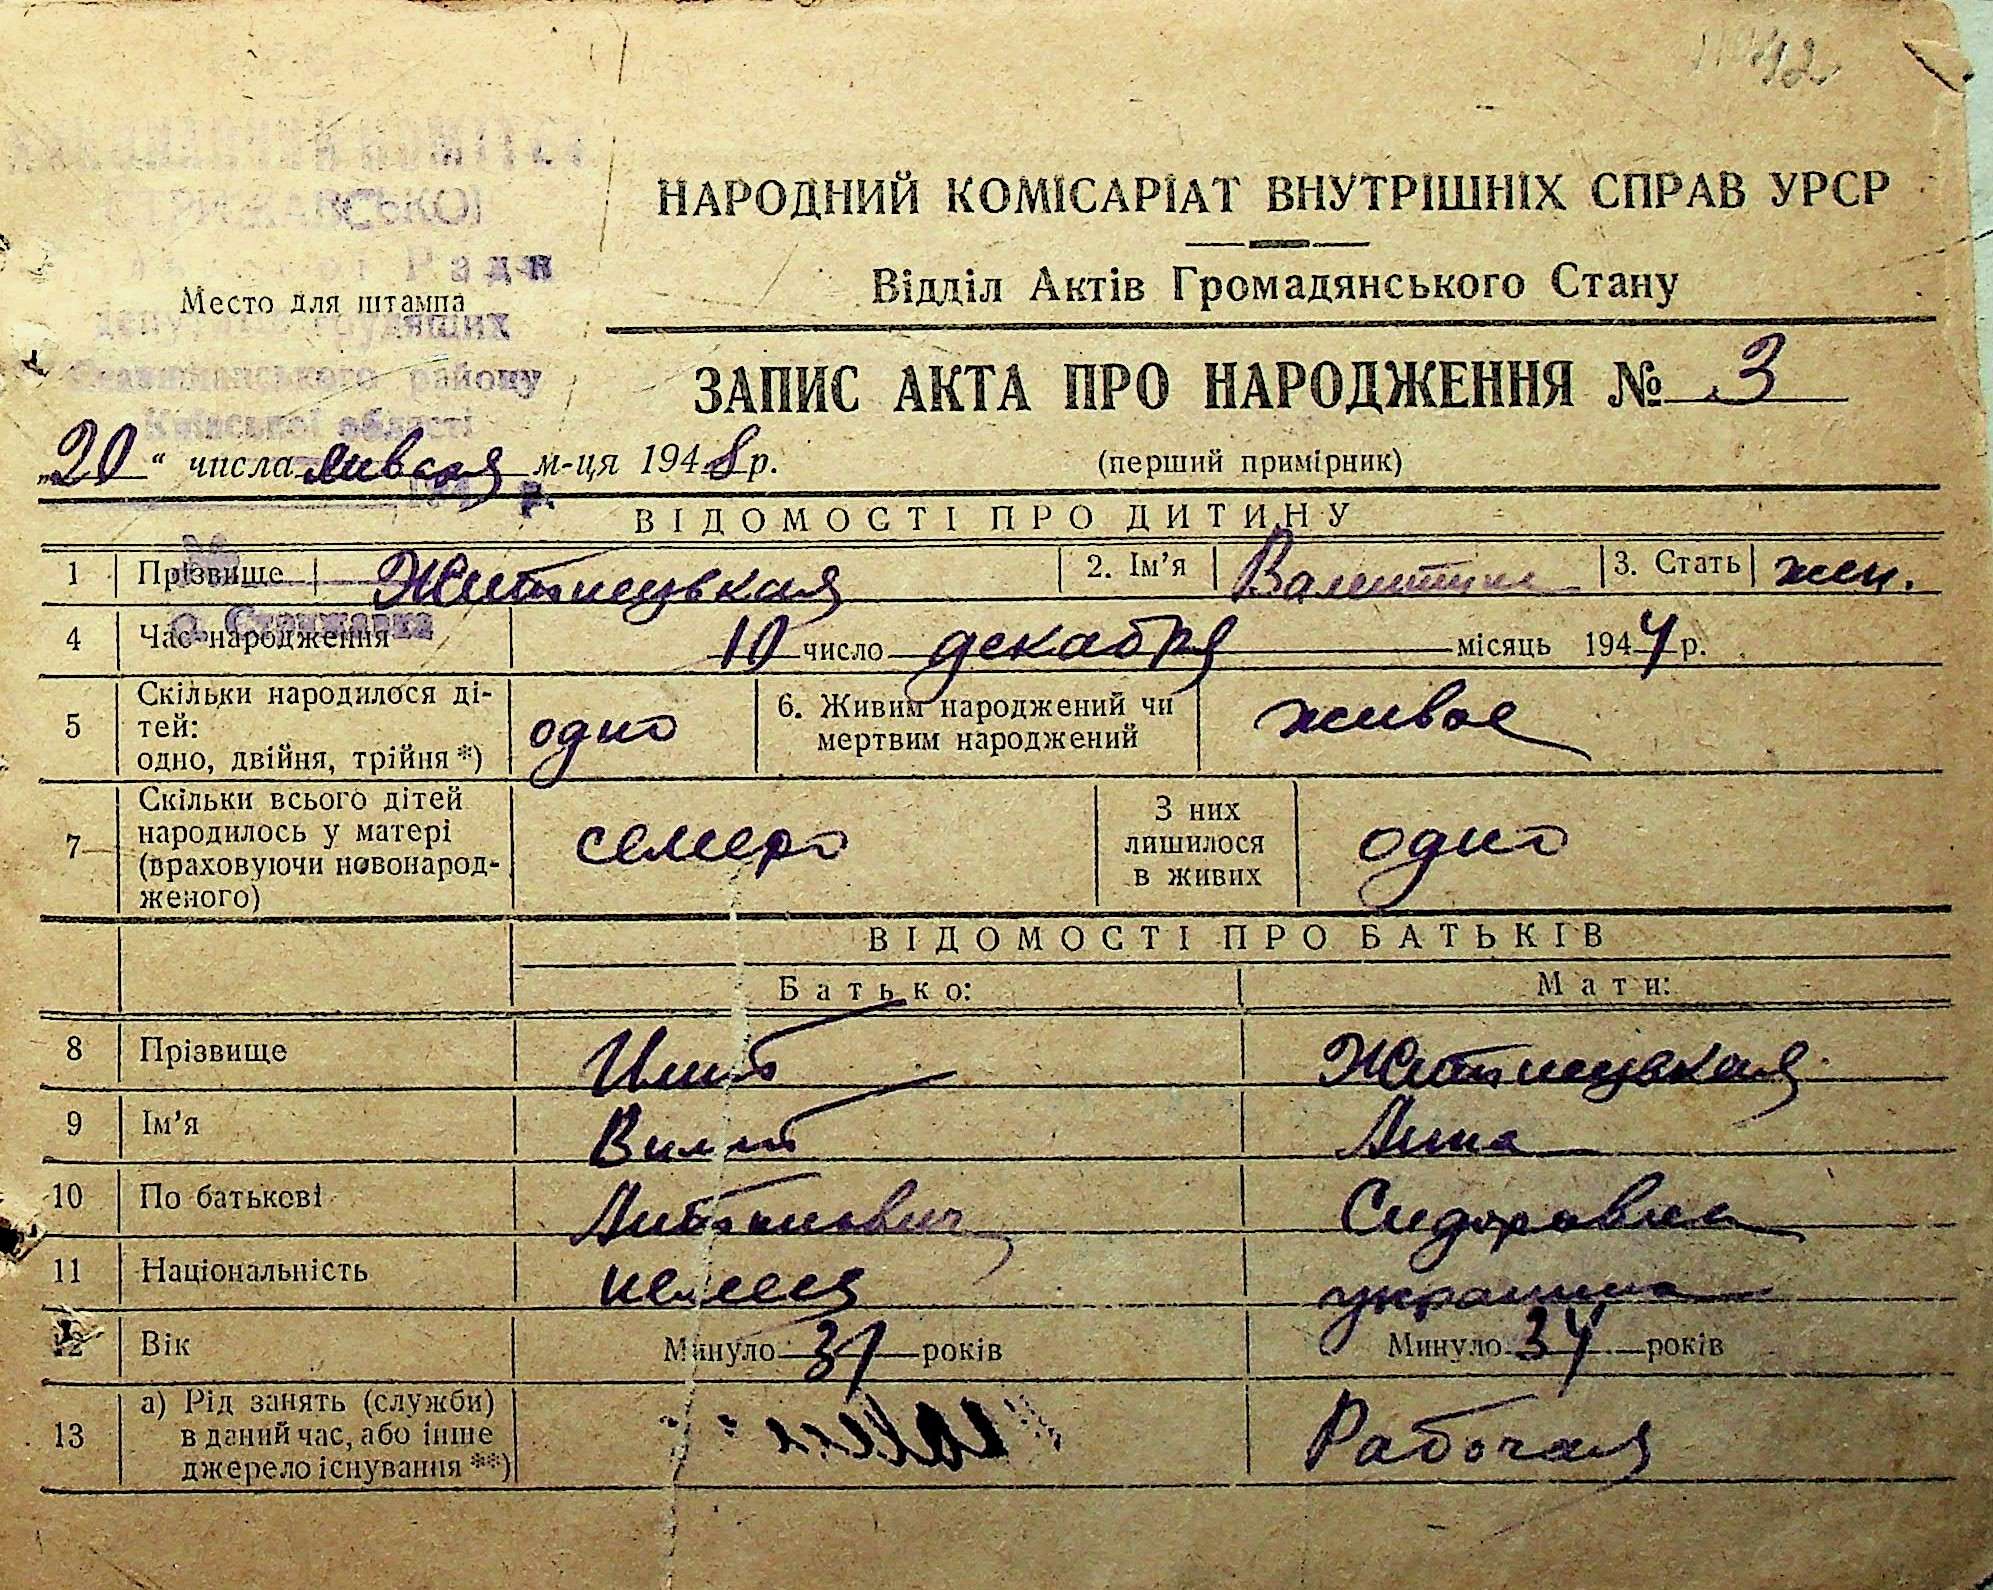 НАРОДНИЙ КОМІСАРІАТ ВНУТРІШНІХ СПРАВ УРСР
Відділ Актів Громадянського Стану
Место для штампа
ЗАПИС АКТА ПРО НАРОДЖЕННЯ № 3
(перший примірник)
Ради
району
Київської області
„20“ числа м-ця 1948 р.
ВІДОМОСТІ ПРО ДИТИНУ
1 Прізвище Житнецькая 2. Ім'я Валентина 3. Стать жен.
с. Стрижавка
4 Час народження 10 число декабря місяць 1944 р.
5 Скільки народилося ді-
тей:
одно, двійня, трійня *) одно 6. Живим народжений чи
мертвим народжений живое
7 Скільки всього дітей
народилось у матері
(враховуючи новонарод-
женого) семеро З них
лишилося
в живих одно
ВІДОМОСТІ ПРО БАТЬКІВ
Батько: Мати:
8 Прізвище Житнецькая
9 Ім'я Анна
10 По батькові Антонович Сидоровна
11 Національність немец украинка
12 Вік Минуло 31 років Минуло 34 років
13 а) Рід занять (служби)
в даний час, або інше
джерело існування **) Рабочая